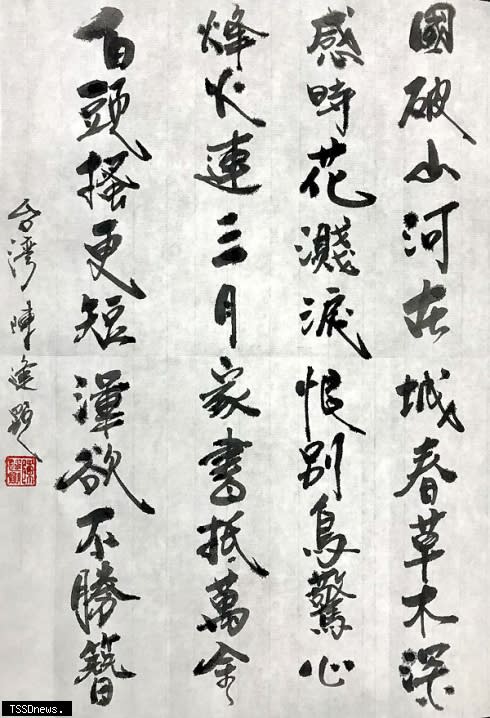 國破山河在城春草木深
感時花濺淚恨別鳥驚心
烽火連三月家書抵萬金
白頭搔更短渾欲不勝簪
台湾陳逢顯
TSSDnews.